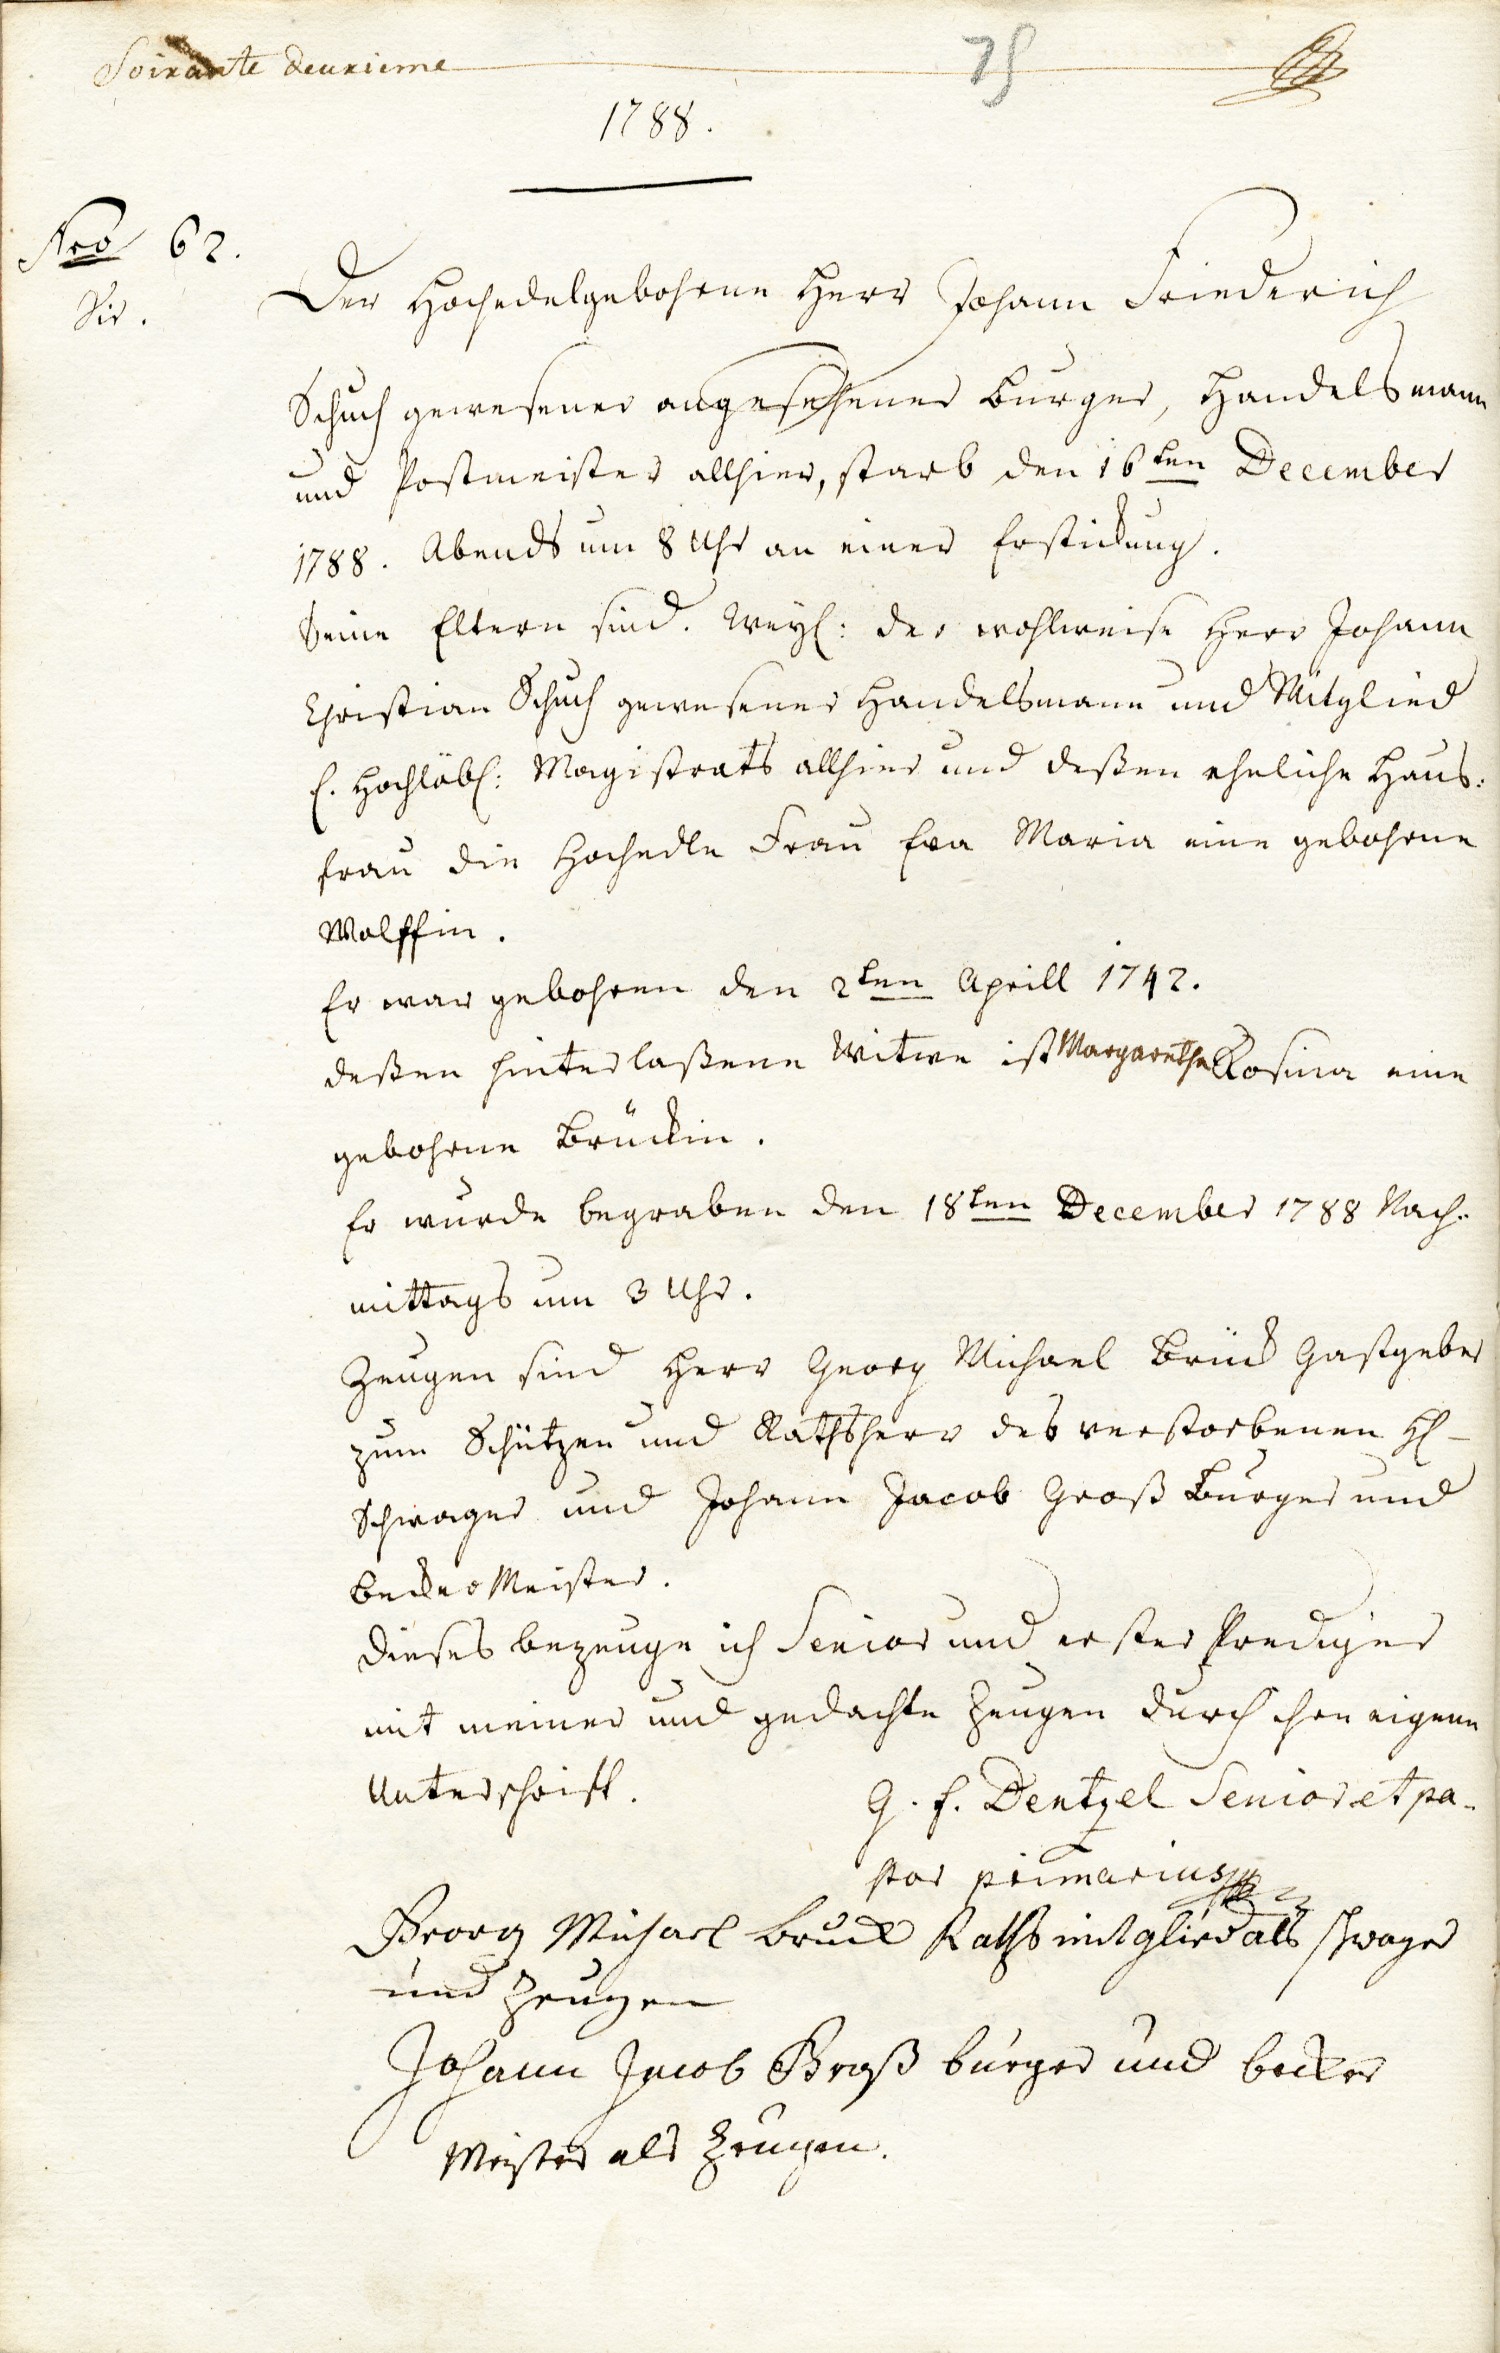 Soixante deuxieme
75
1788.
Nro 62.
Der Hochedelgebohrne Herr Johann Friederich
Schuch gewesener angesehener Burger, Handelsmann
und Postmeister allhier, starb den 16ten December
1788. Abends um 8 Uhr an einer Erstickung.
Seine Eltern sind. Weyl: der wohlweise Herr Johann
Christian Schuch gewesener Handelsmann und Mitglied
E. Hochlöbl: Magistrats allhier und deßen eheliche Haus:
frau die Hochedle Frau Eva Maria eine gebohrne
Wolffin.
Er war gebohren den 2ten Aprill 1742.
deßen hinterlaßene Witwe ist Margaretha Rosina eine
gebohrne Brückin.
Er wurde begraben den 18ten December 1788 Nach-
mittags um 3 Uhr.
Zeugen sind Herr Georg Michael Brück Gastgeber
zum Schützen und Rathsherr des verstorbenen H
Schwager und Johann Jacob Groß Burger und
Becker Meister.
Dieses bezeuge ich Senior und erster Prediger
mit meiner und gedachte Zeugen durch ihre eigene
Unterschrift.
G. F. Dentzel Senior et pa-
stor primarius
Georg Michael Bruck Raths mitglied als schwager
und Zeugen
Johann Jacob Groß burger und becker
Meister als Zeugen.